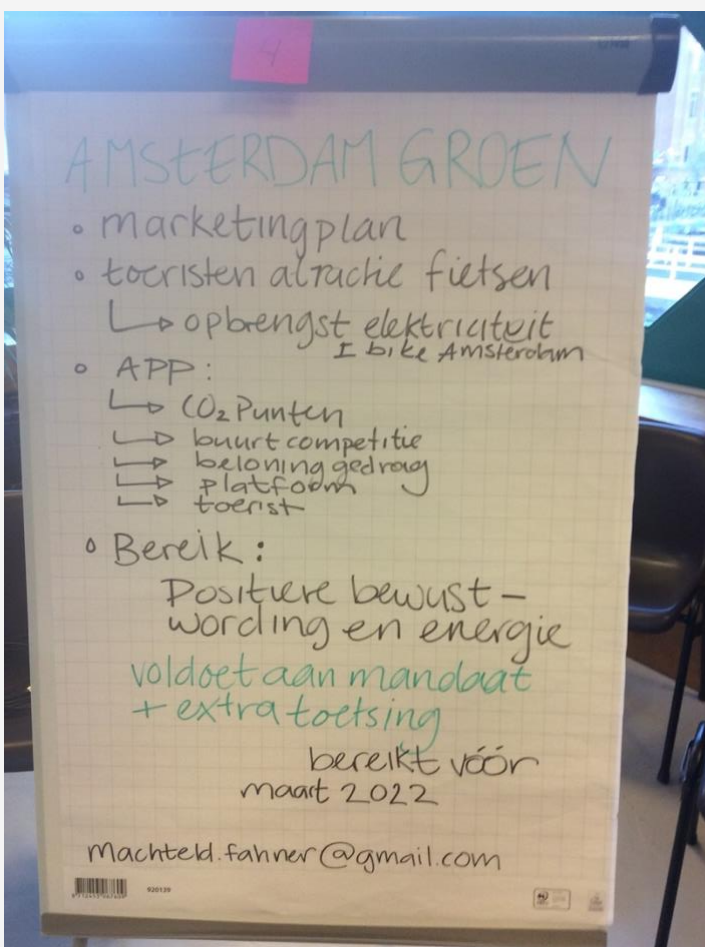 4
AMSTERDAM GROEN
• marketingplan
• toeristen atractie fietsen
↳ opbrengst elektriciteit
I bike Amsterdam
• APP:
↳ CO₂ Punten
↳ buurt competitie
↳ beloning gedrag
↳ platfoom
↳ toerist
• Bereik:
Positieve bewust-
wording en energie
voldoet aan mandaat
+ extra toetsing
bereikt vóór
maart 2022
machteld.fahner@gmail.com
920129